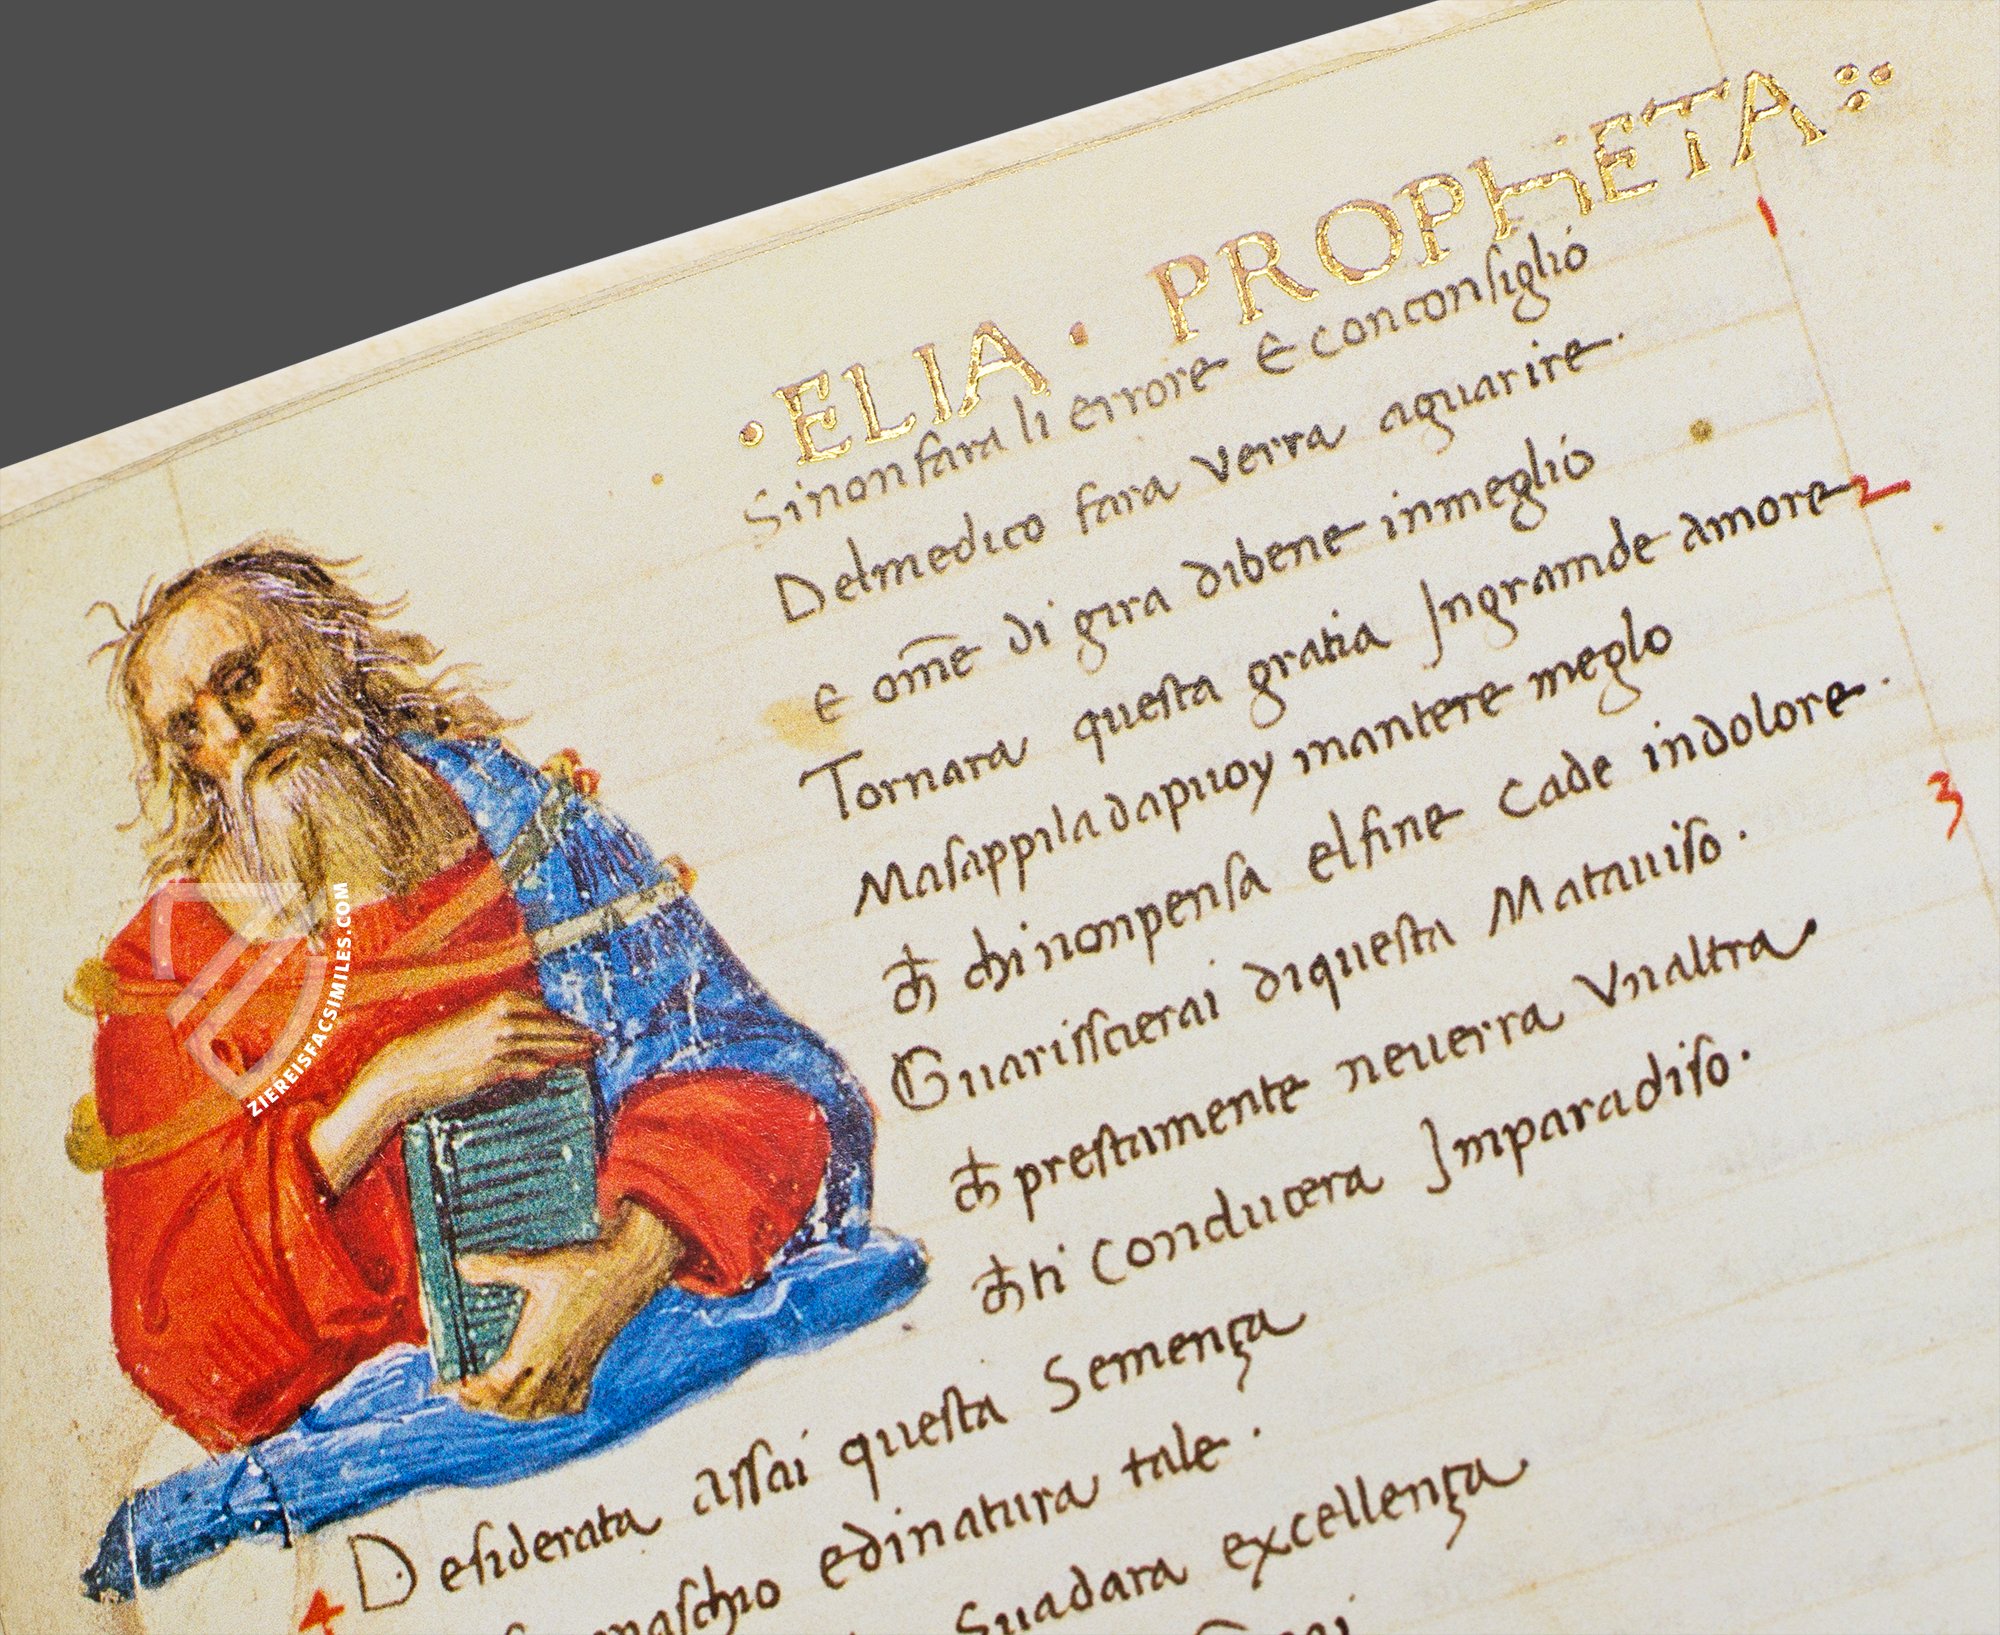 ·ELIA · PROPHETA
1
Sinon fara li errore E conconsiglio
Delmedico fara verra aguarire.
E om̄e di gira dibene inmeglio
Tornara questa gratia Ingramde amore 2
Masappila dapuoy mantere meglo
ch chinonpensa elfine cade indolore.
3
Guarissierai diquesta Matauiso.
ch prestamente neuerra Vnaltra
chti Conducera Imparadiso.
4 Desiderata assai questa Semença
naschio edinatura tale.
Suadara excellença
ZIEREISFACSIMILES.COM